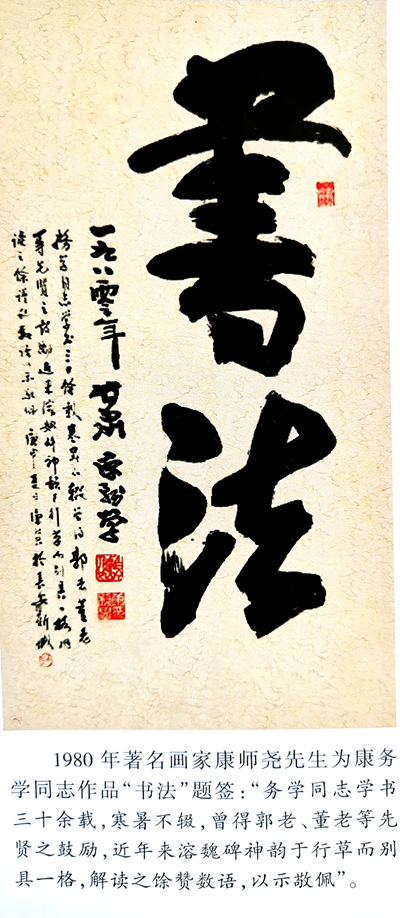 書法
一九八零年 甘肃 康務學
務学同志学书三十余载寒暑不辍曾得郭老董老
等先贤之鼓励近来溶魏碑神韵于行草而别具一格
讀之馀谨赞数语以示敬佩 庚申夏
1980 年著名画家康师尧先生为康务
学同志作品“书法”题签：“务学同志学书
三十余载，寒暑不辍，曾得郭老、董老等先
贤之鼓励，近年来溶魏碑神韵于行草而别
具一格，解读之馀赞数语，以示敬佩”。